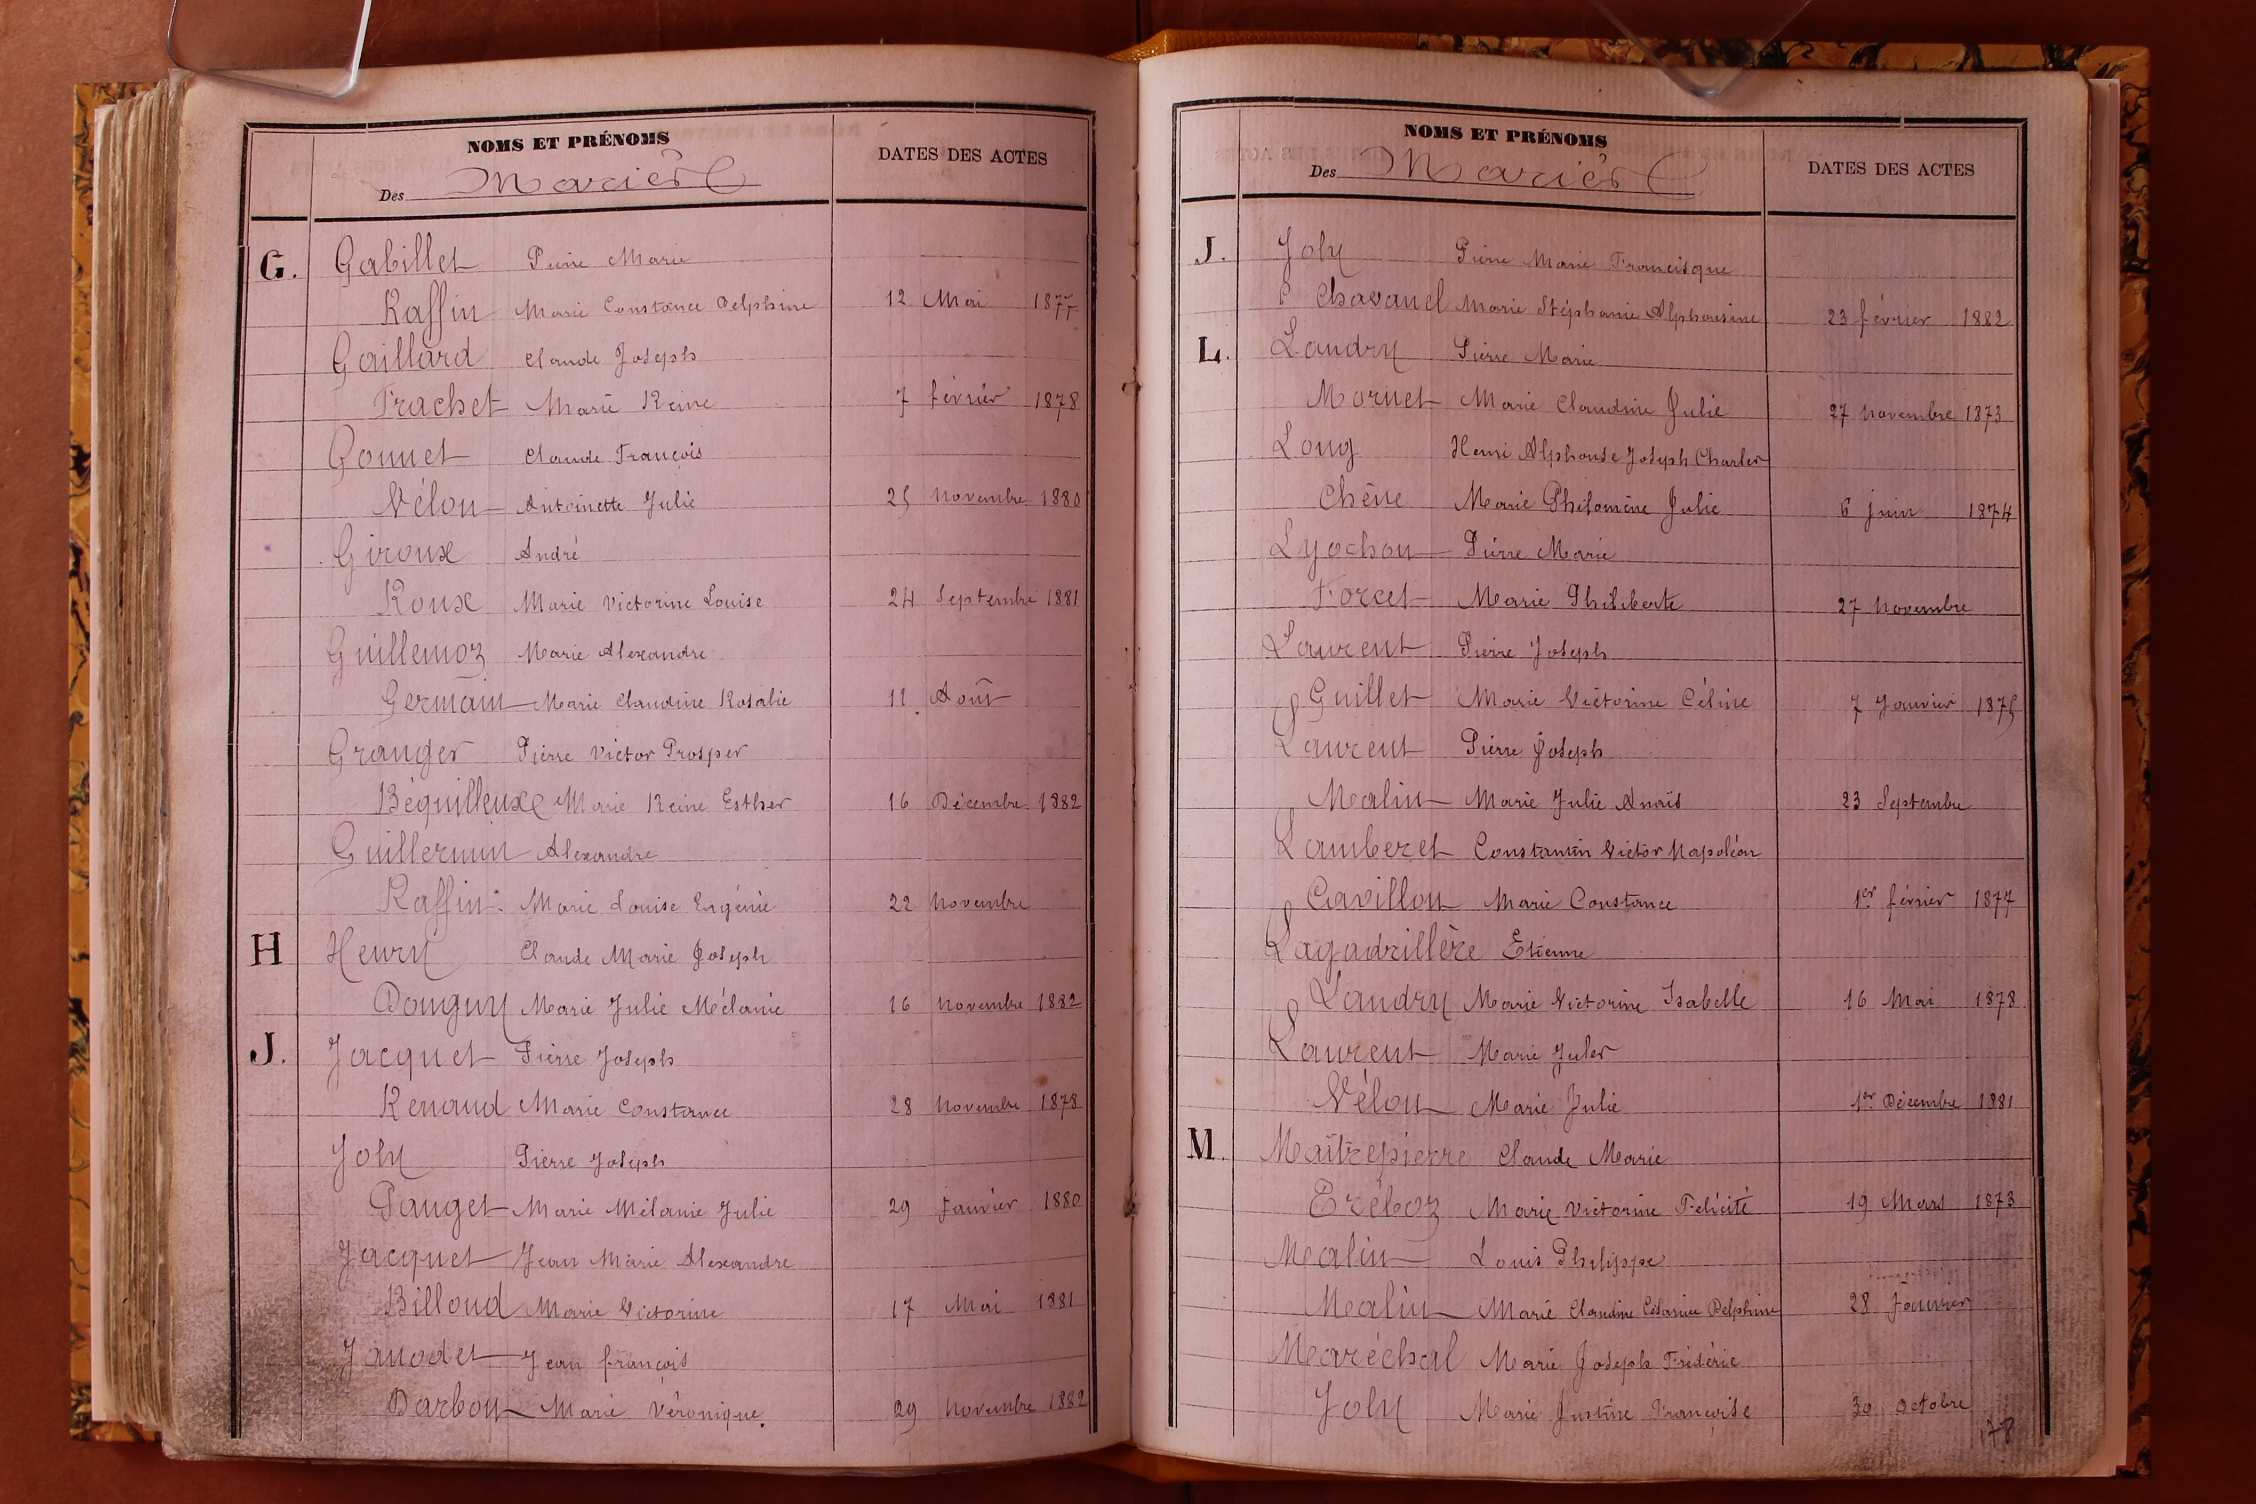 NOMS ET PRÉNOMS
Des Mariés
DATES DES ACTES
G. Gabillet Pierre Marie
Raffin Marie Constance Delphine 12 Mai 1877
Gaillard Claude Joseph
Trachet Marie Reine 7 février 1878
Gonnet Claude François
Vélon Antoinette Julie 25 Novembre 1880
Giroux André
Roux Marie Victorine Louise 24 Septembre 1881
Guillemoz Marie Alexandre
Germain Marie Claudine Rosalie 11 Août
Granger Pierre Victor Prosper
Béguilleux Marie Reine Esther 16 Décembre 1882
Guillermin Alexandre
Raffin Marie Louise Eugénie 22 Novembre
H Henry Claude Marie Joseph
Donguy Marie Julie Mélanie 16 Novembre 1882
J. Jacquet Pierre Joseph
Renaud Marie Constance 28 Novembre 1878
Joly Pierre Joseph
Pauget Marie Mélanie Julie 29 Janvier 1880
Jacquet Jean Marie Alexandre
Billoud Marie Victorine 17 Mai 1881
Janodet Jean François
Darbon Marie Véronique. 29 Novembre 1882
NOMS ET PRÉNOMS
Des Mariés
DATES DES ACTES
J. Joly Pierre Marie Francisque
Chavanel Marie Stéphanie Alphonsine 23 février 1882
L. Landry Pierre Marie
Mornet Marie Claudine Julie 27 Novembre 1873
Long Henri Alphonse Joseph Charles
Chêne Marie Philomène Julie 6 juin 1874
Lyochon Pierre Marie
Forcet Marie Philiberte 27 Novembre
Laurent Pierre Joseph
Guillet Marie Victorine Céline 7 Janvier 1875
Laurent Pierre Joseph
Malin Marie Julie Anaïs 23 Septembre
Lamberet Constantin Victor Napoléon
Cavillon Marie Constance 1er février 1877
Lagadrillère Etienne
Landry Marie Victorine Isabelle 16 Mai 1878
Laurent Marie Jules
Vélon Marie Julie 1er Décembre 1881
M Maîtrepierre Claude Marie
Eréboz Marie Victorine Félicité 19 Mars 1873
Malin Louis Philippe
Malin Marie Claudine Césarine Delphine 28 Janvier
Maréchal Marie Joseph Frédéric
Joly Marie Justine Françoise 30 Octobre
78